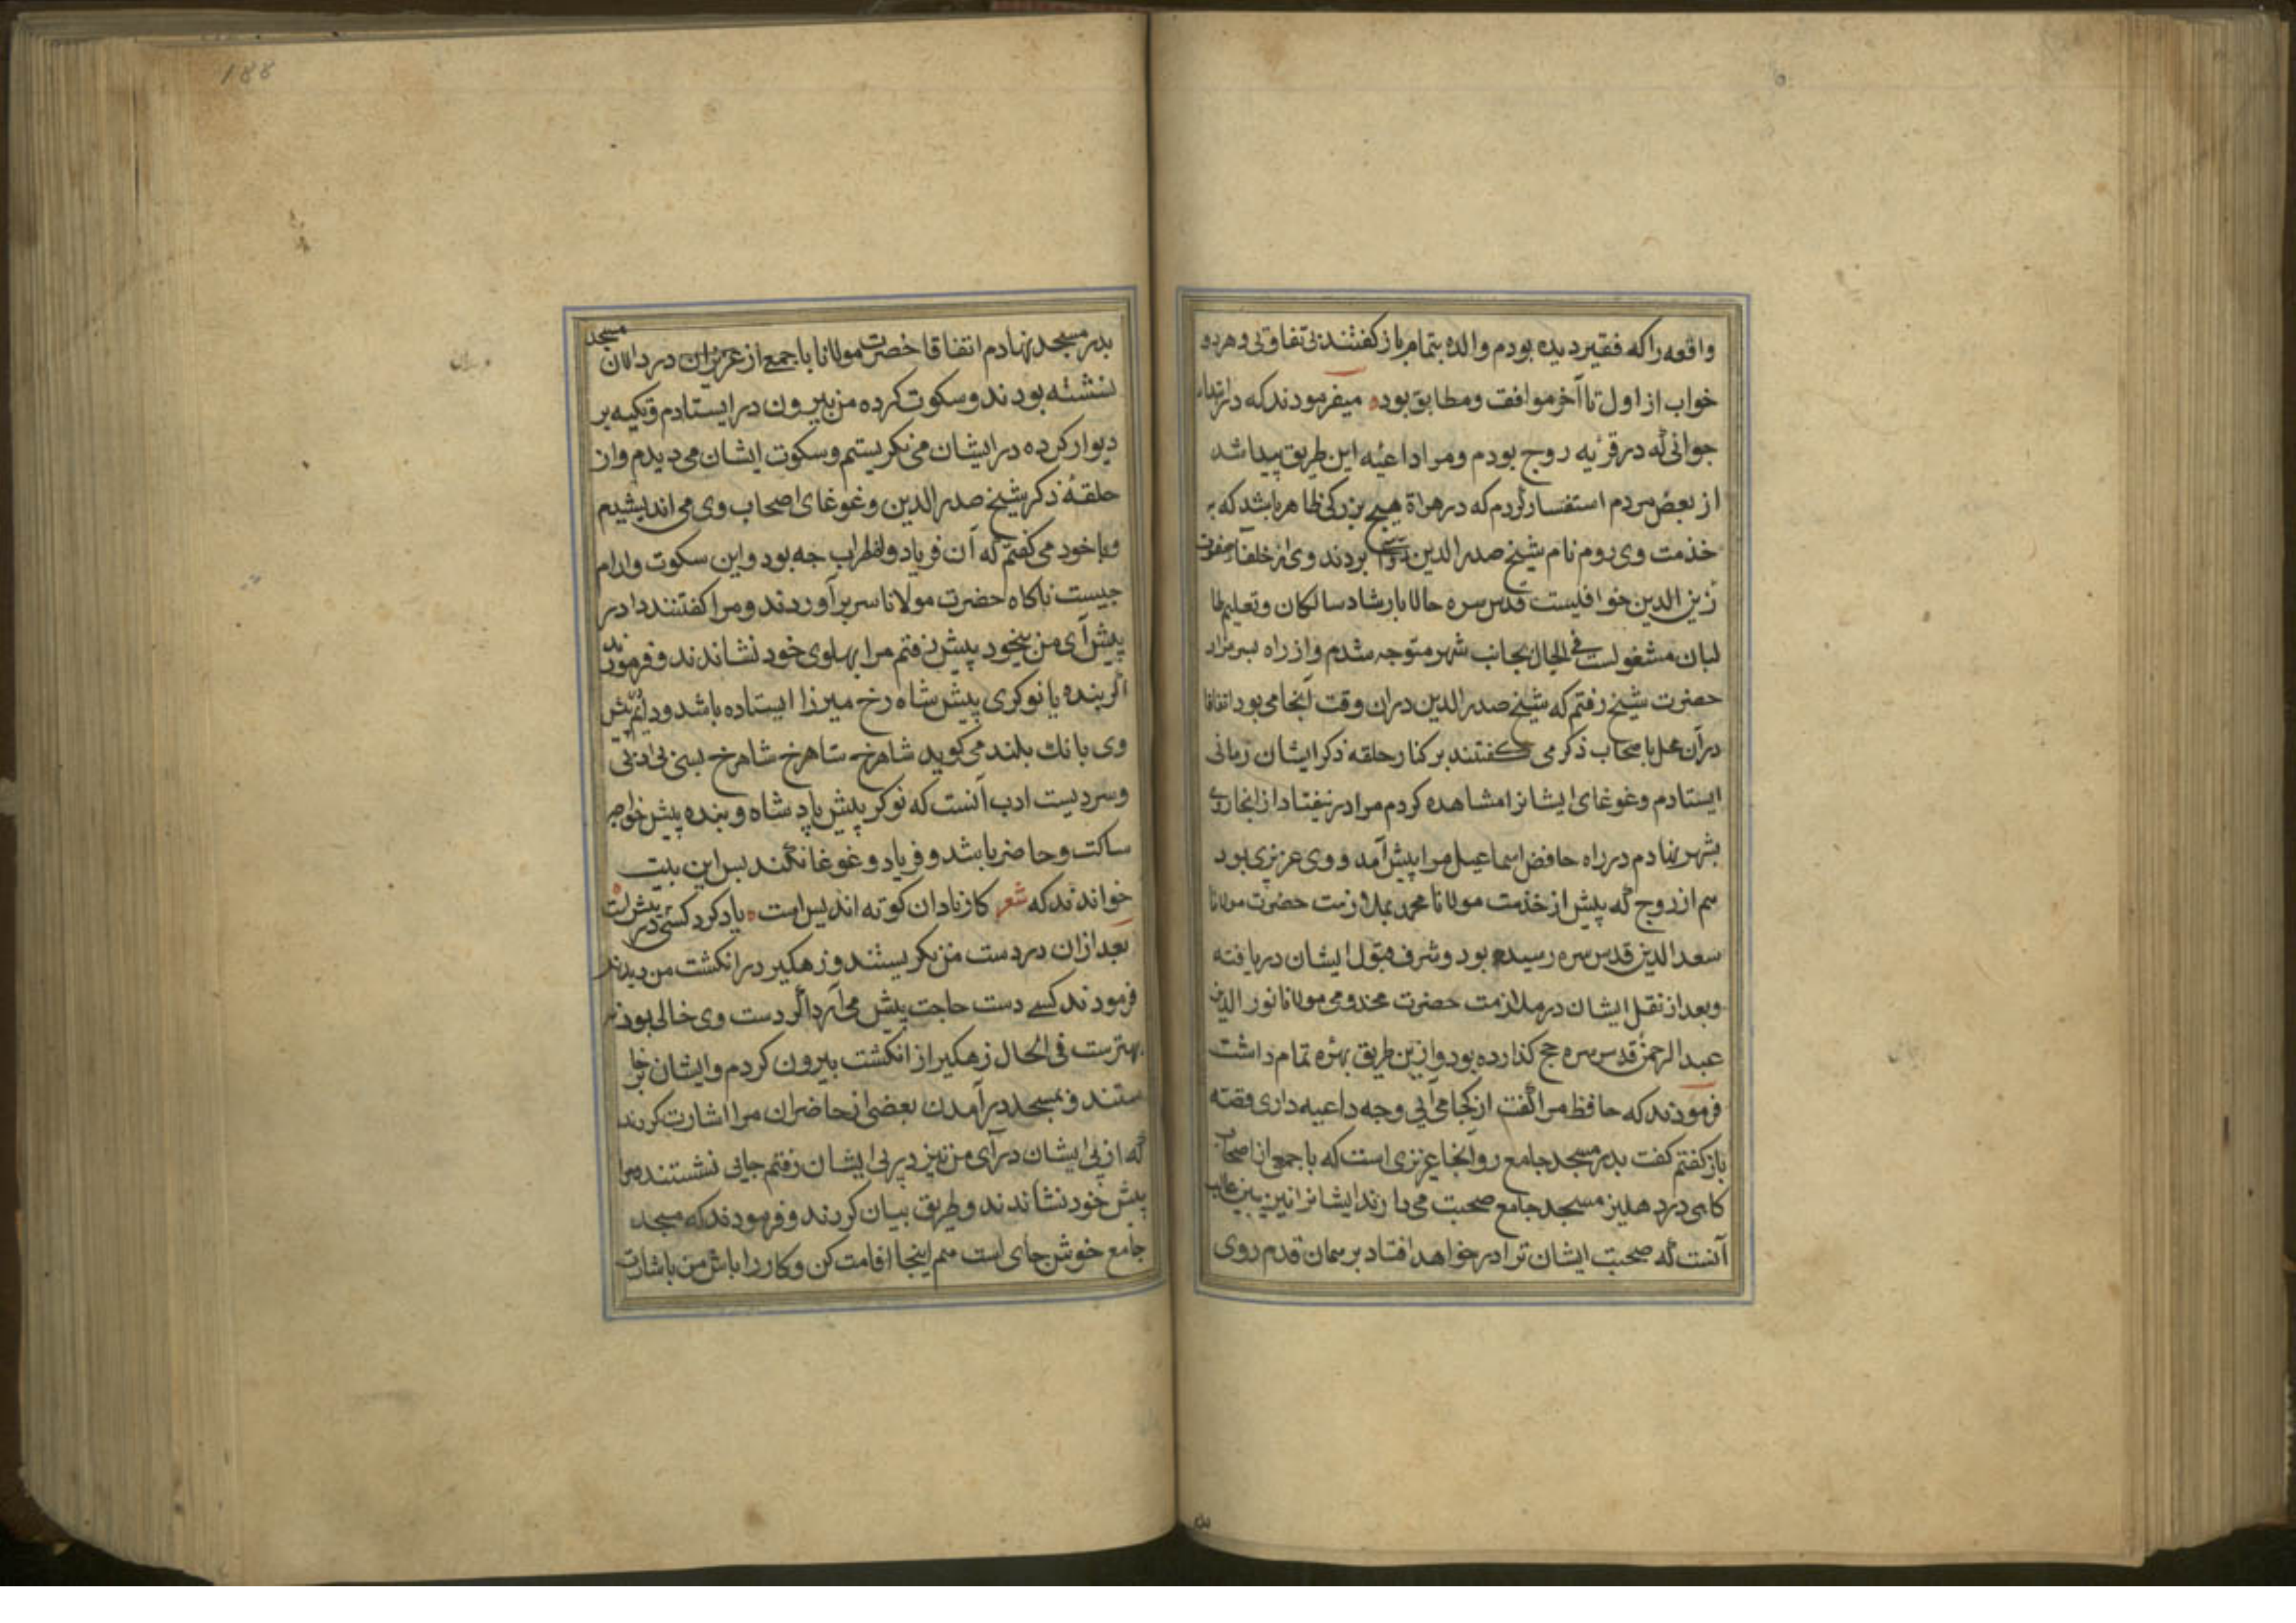 واقعه را که فقیر دیده بودم والده بتمام باز کفتند بی تفاوتی و هر دو
خواب از اول تا آخر موافقت ومطابق بوده میفرمودند که در ابتداء
جوانی که در قریه روج بودم ومرا داعیه این طریق پیدا شد
از بعض مردم استفسار کردم که در هراة هیچ بزرکی ظاهر باشد که به
خذمت وی روم نام شیخ صدر الدین بردند وی از خلفاء حضرت
زین الدین خوافیست قدس سره حالا بارشاد سالکان وتعلیم طا
لبان مشغولست فی الحال بجانب شهر متوجه شدم واز راه بسر مزار
حضرت شیخ رفتم که شیخ صدر الدین دران وقت آنجا می بود اتفاقا
دران محل باصحاب ذکر می کفتند بر کنار حلقه ذکر ایشان زمانی
ایستادم وغوغای ایشانرا مشاهده کردم مرا در نیفتاد از انجا روی
بشهر نهادم در راه حافض اسماعیل مرا پیش آمد و وی عزیزی بود
هم از روج که پیش از خذمت مولانا محمد بملازمت حضرت مولانا
سعد الدین قدس سره رسیده بود وشرف قبول ایشان دریافته
وبعد از نقل ایشان در ملازمت حضرت مخدومی مولانا نور الدین
عبد الرحمن قدس سره حج کذارده بود وازین طریق بهره تمام داشت
فرمودند که حافظ مرا کفت از کجا می آیی وچه داعیه داری قصه
باز کفتم کفت بدر مسجد جامع رو آنجا عزیزی است که با جمعی از اصحاب
کاهی در دهلیز مسجد جامع صحبت می دارند ایشانرا نیز ببین غالب
آنست که صحبت ایشان ترا در خواهد افتاد بر همان قدم روی
188
بدر مسجد نهادم اتفاقا حضرت مولانا با جمعی از عزیزان در دالان مسجد
نشسته بودند وسکوت کرده من بیرون در ایستادم وتکیه بر
دیوار کرده در ایشان می نکریستم وسکوت ایشان می دیدم واز
حلقه ذکر شیخ صدر الدین وغوغای اصحاب وی می اندیشیدم
وبا خود می کفتم که آن فریاد واضطراب چه بود واین سکوت وارام
چیست ناکاه حضرت مولانا سر بر آوردند ومرا کفتند دادر
پیش آی من بیخود پیش رفتم مرا بهلوی خود نشاندند وفرمودند
اکر بنده یا نوکری پیش شاه رخ میرزا ایستاده باشد ودایم پیش
وی بانك بلند می کوید شاهرخ شاهرخ شاهرخ بسی بی ادبی
وسردیست ادب آنست که نوکر پیش پادشاه وبنده پیش خواجه
ساکت وحاضر باشد وفریاد وغوغا نکند بس این بیت
خواندند که شعر کار نادان کوته اندیش است یاد کرد کسی که در پیش است
بعد ازان در دست من نکریستند وزهکیر در انکشت من دیدند
فرمودند کسی دست حاجت پیش می آرد اکر دست وی خالی بود
بهترست فی الحال زهکیر از انکشت بیرون کردم وایشان برخا
ستند وبمسجد در آمدند بعضی از حاضران مرا اشارت کردند
که از پی ایشان در آی من نیز در پی ایشان رفتم جایی نشستند ومرا
پیش خود نشاندند وطریق بیان کردند وفرمودند که مسجد
جامع خوش جای است هم اینجا اقامت کن وکار را باش من باشارت